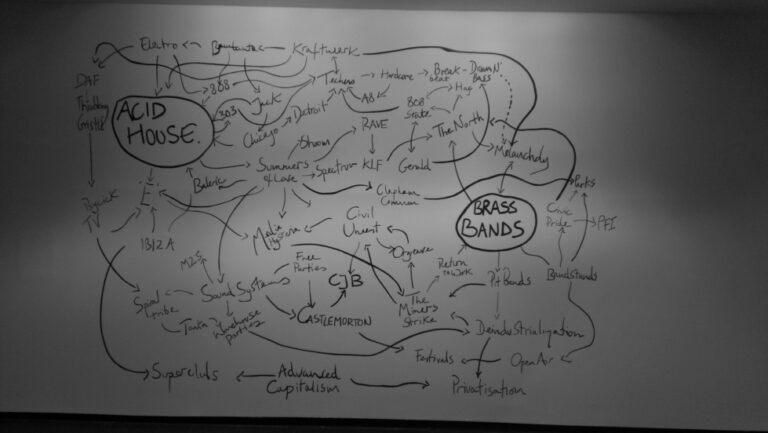 Electro
Kraftwerk
DAF
Throbbing
Gristle
808
Techno
Hardcore
Break-
beat
Drum N'
Bass
ACID
HOUSE.
303
Jack
Chicago
Detroit
A8
808
State
Hag
RAVE
The North
Melancholy
Shoom
Summers
of Love
Spectrum
KLF
Gerald
Balearic
Clapham
Common
BRASS
BANDS
Parks
Civic
Pride
PFI
Psychick
TV
"E"
1312A
Media
Hysteria
Civil
Unrest
Orgreave
M25
Free
Parties
CJB
Return
to Work
Pit Bands
Bandstands
Spiral
Tribe
Sound Systems
Tonka
Warehouse
parties
CASTLEMORTON
The
Miners
Strike
Deindustrialization
Festivals
Open Air
Superclubs
Advanced
Capitalism
Privatisation